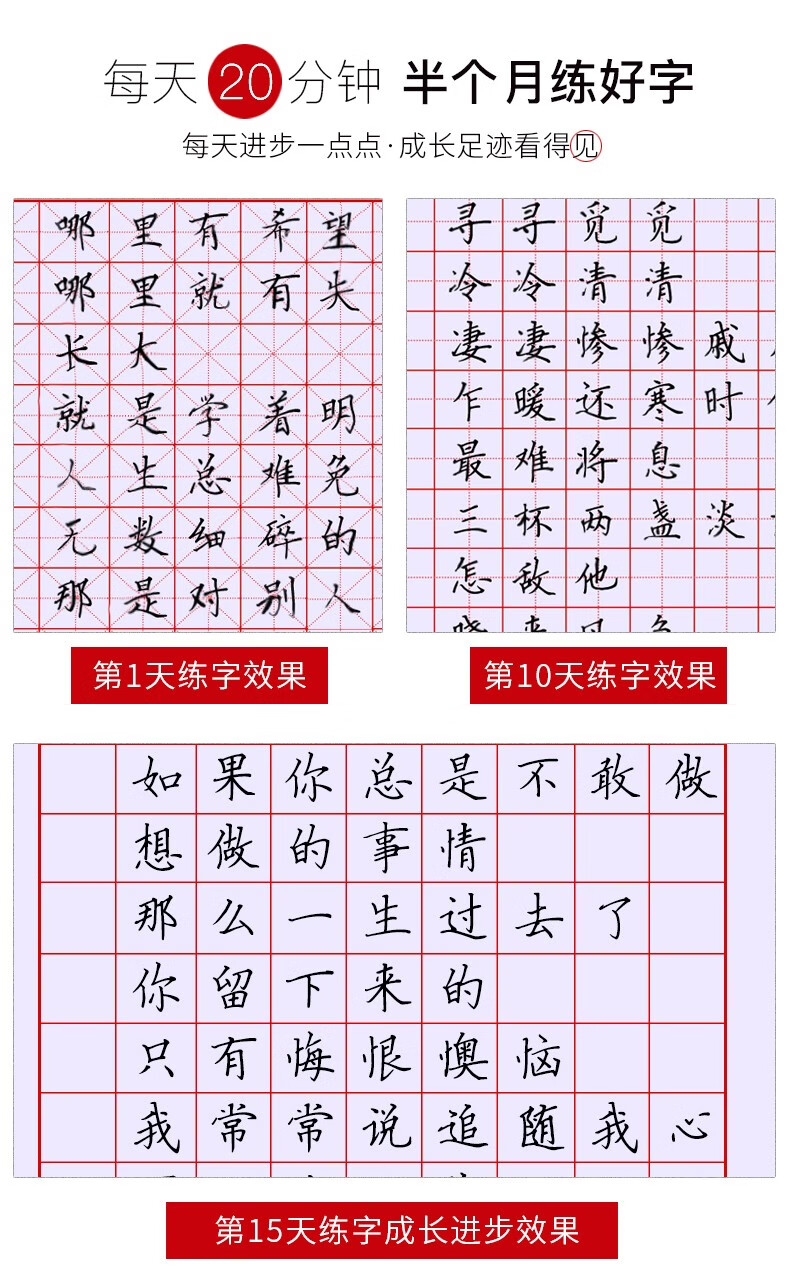 每天20分钟 半个月练好字
每天进步一点点·成长足迹看得见
哪里有希望
哪里就有失
长大
就是学着明
人生总难免
无数细碎的
那是对别人
寻寻觅觅
冷冷清清
凄凄惨惨戚
乍暖还寒时
最难将息
三杯两盏淡
怎敌他
第1天练字效果
第10天练字效果
如果你总是不敢做
想做的事情
那么一生过去了
你留下来的
只有悔恨懊恼
我常常说追随我心
第15天练字成长进步效果